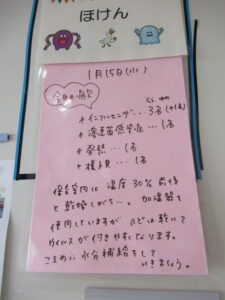 ほけん
1月15日(水)
今日の病欠
*インフルエンザ…3名
*溶連菌感染症…1名
*発熱…1名
*様子見…1名
保育室内は湿度30%前後
と乾燥しがち…。加湿器を
使用していますが のどは乾いて
ウイルスが付きやすくなります。
こまめに水分補給をして
いきましょう。